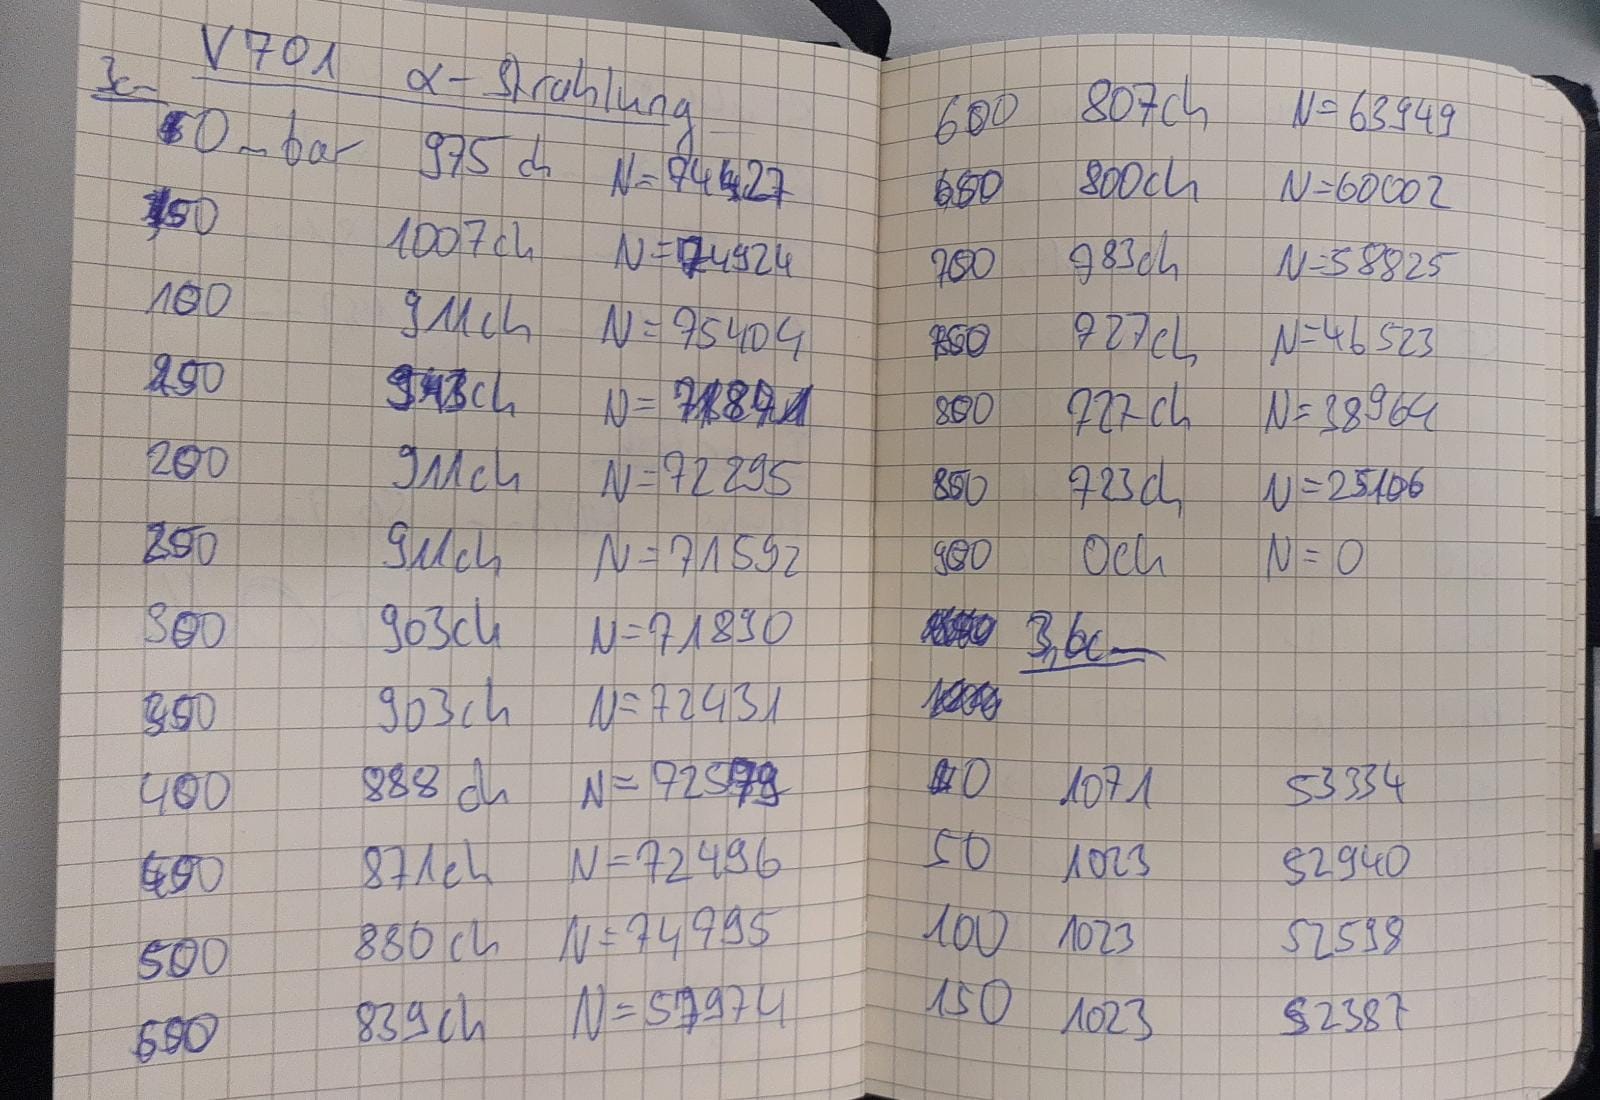 V701 α-Strahlung
3cm
0 mbar 975 ch N=74427
50 1007ch N=74924
100 911ch N=75404
150 943ch N=71871
200 911ch N=72295
250 911ch N=71592
300 903ch N=71890
350 903ch N=72431
400 888 ch N=72579
450 871ch N=72496
500 880ch N=74795
550 839ch N=57974
600 807ch N=63949
650 800ch N=60002
700 783ch N=58825
750 727ch N=46523
800 727ch N=38964
850 723ch N=25106
900 0ch N=0
3,6cm
0 1071 53334
50 1023 52940
100 1023 52598
150 1023 52387